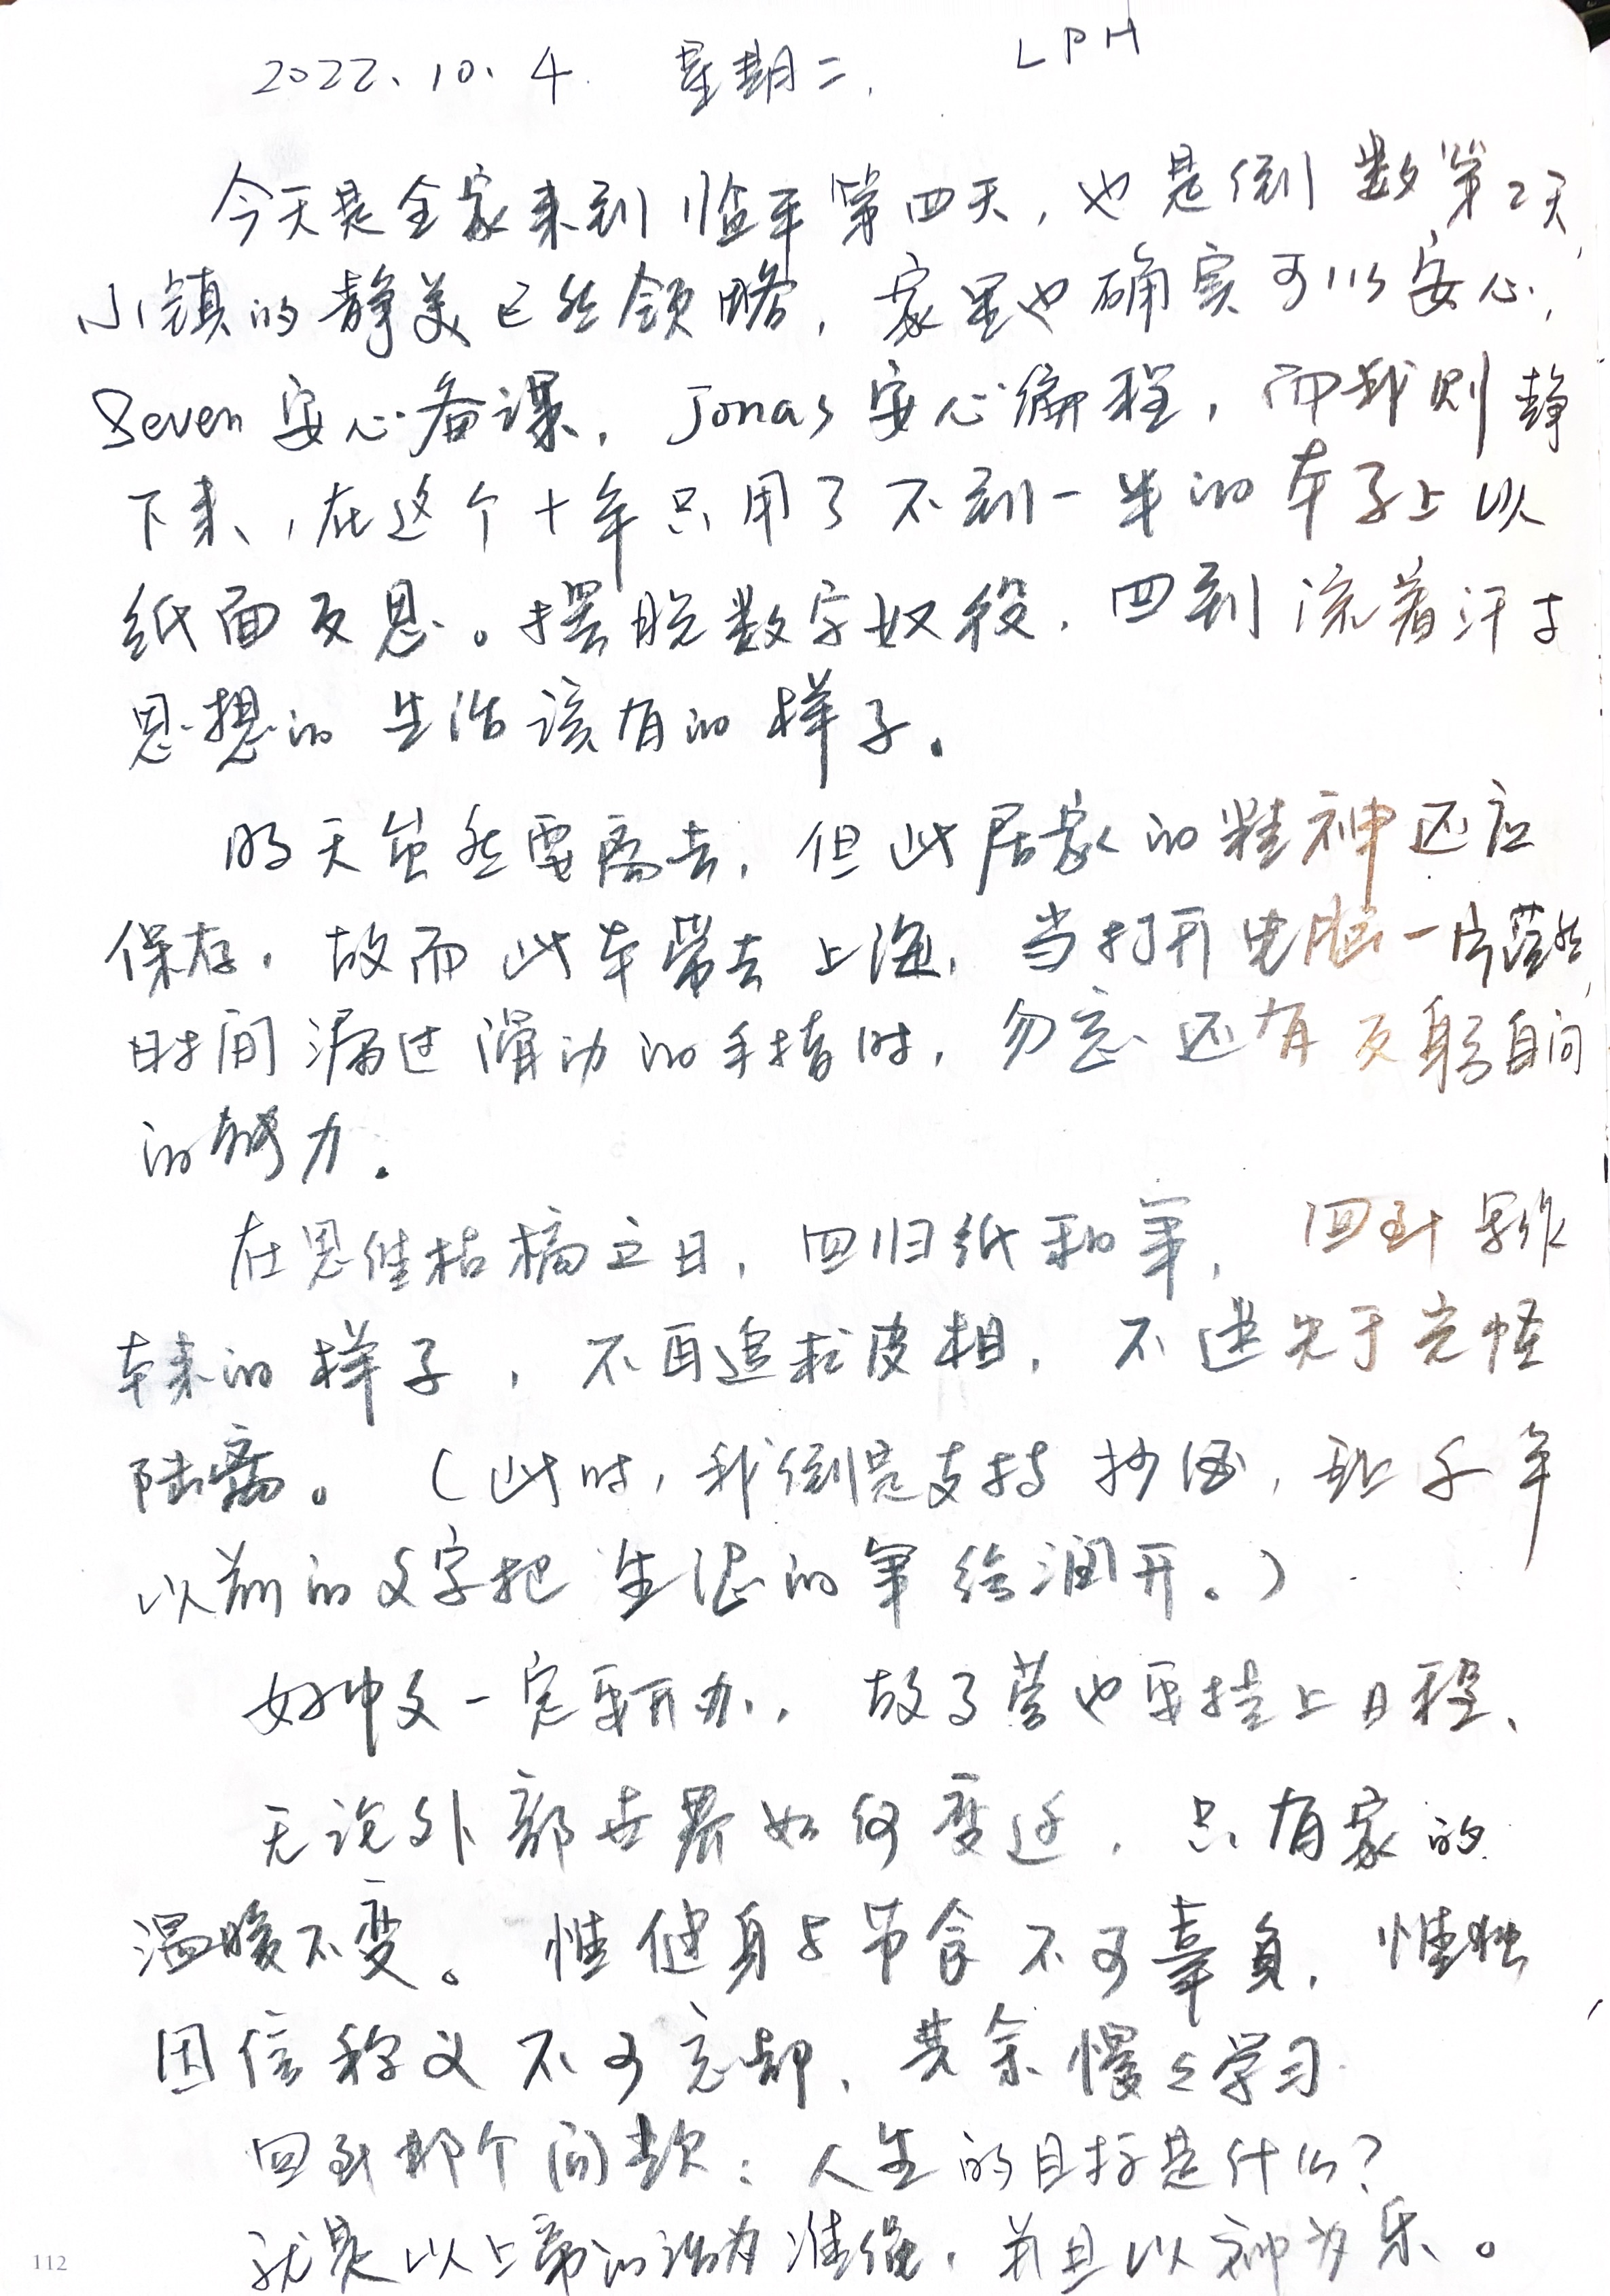 2022.10.4. 星期二. LPH
今天是全家来到临平第四天,也是倒数第2天,
小镇的静美已然领略,家里也确实可以安心,
Seven安心备课,Jonas安心编程,而我则静
下来,在这个十年只用了不到一半的本子上以
纸面反思。摆脱数字奴役,回到流着汗才
思想的生活该有的样子。
明天虽然要离去,但此居家的精神还应
保存,故而此本带去上海,当打开电脑一片茫然,
时间漏过滑动的手指时,勿忘还有反躬自问
的努力。
在思维枯槁之日,回归纸和笔,回到写作
本来的样子,不再追求皮相,不迷失于光怪
陆离。(此时,我倒是支持抄经,跟千年
以前的文字把生涩的笔给润开。)
好中文一定要开办,故事营也要提上日程、
无论外部世界如何变迁,只有家的
温暖不变。惟健身与节食不可辜负,惟独
因信称义不可忘却,其余慢々学习
回到那个问题:人生的目标是什么?
就是以上帝的话为准绳,并且以神为乐。
112